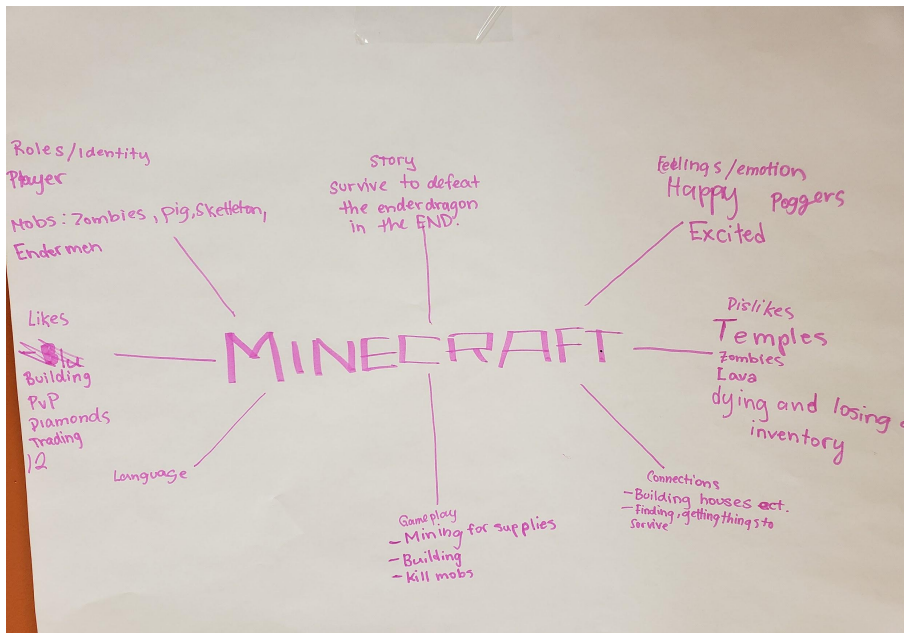 Roles/identity
Player
Mobs: Zombies, pig, skelleton,
Endermen
Story
Survive to defeat
the enderdragon
in the END.
Feelings/emotion
Happy Poggers
Excited
Likes
Building
PvP
Diamonds
Trading
12
MINECRAFT
Dislikes
Temples
Zombies
Lava
dying and losing
inventory
Language
Gameplay
- Mining for supplies
- Building
- Kill mobs
Connections
- Building houses ect.
- Finding, getting things to
survive